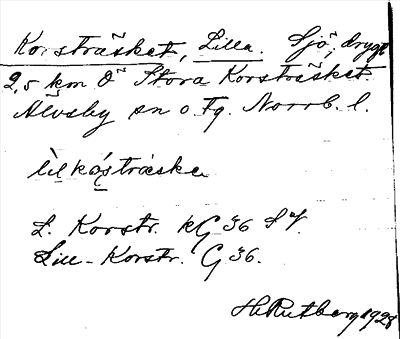 Korsträsket, Lilla. Sjö, drygt
2,5 km Ö Stora Korsträsket.
Älvsby sn o. Tg. Norrb. l.
lìlkǻstràske
L. Korstr. kG 36
Lill-Korstr. G 36.
H. Rutberg 1928